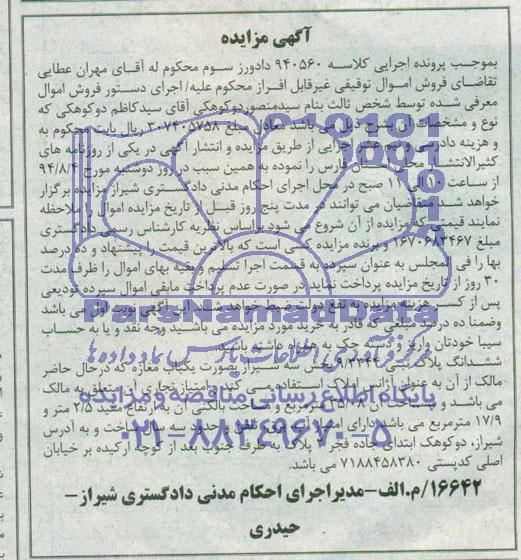 آگهی مزایده
بموجب پرونده اجرایی کلاسه ۹۴۰۵۶۰ دادورز سوم محکوم له آقای مهران عطایی
تقاضای فروش اموال توقیفی غیرقابل افراز محکوم علیه/ اجرای دستور فروش اموال
معرفی شده توسط شخص ثالث بنام سیدمنصوردوکوهکی آقای سیدکاظم دوکوهکی که
نوع و مشخصات آن بشرح ذیل می باشد معادل مبلغ ۳۰۷۴۰۵۷۵۸ ریال بابت محکوم به
و هزینه دادرسی و نیم عشر اجرایی از طریق مزایده و انتشار آگهی در یکی از روزنامه های
کثیرالانتشار محلی استان فارس را نموده به همین سبب در روز دوشنبه مورخ ۹۴/۸/۴
از ساعت ۱۰ الی ۱۱ صبح در محل اجرای احکام مدنی دادگستری شیراز مزایده برگزار
خواهد شد متقاضیان می توانند در مدت پنج روز قبل از تاریخ مزایده اموال را ملاحظه
نمایند قیمتی که مزایده از آن شروع می شود براساس نظریه کارشناس رسمی دادگستری
مبلغ ۱۶۷۰۶۸۳۴۶۷ و برنده مزایده کسی است که بالاترین قیمت را پیشنهاد و ده درصد
بها را فی المجلس به عنوان سپرده به قسمت اجرا تسلیم و بقیه بهای اموال را ظرف مدت
۳۰ روز از تاریخ مزایده پرداخت نماید در صورت عدم پرداخت مابقی اموال سپرده تودیعی
پس از کسر هزینه مزایده به نفع دولت ضبط خواهد شد. این آگهی نوبت اول می باشد
وضمنا ده درصد مبلغی که قادر به خرید مورد مزایده می باشید وجه نقد و یا به حساب
سیبا خودتان واریز و دسته چک به همراه داشته باشید.
ششدانگ پلاک ثبتی بخش سه شیراز بصورت یکباب مغازه که درحال حاضر
مالک از آن به عنوان آژانس املاک استفاده می کند و امتیاز تجاری آن متعلق به مالک
می باشد و مساحت آن مترمربع و مساحت بالکنی آن به ارتفاع مفید ۲/۵ متر و
۱۷/۹ مترمربع می باشد دارای امتیاز آب برق تلفن و حدود سه سال ساخت و به آدرس
شیراز، دوکوهک ابتدای جاده فجر ۳ پلاک به طرف جنوب بعد از کوچه ارکیده بر خیابان
اصلی کدپستی ۷۱۸۸۴۵۸۳۸۰ می باشد.
۱۶۶۴۲/م.الف-مدیراجرای احکام مدنی دادگستری شیراز-
حیدری
ParsNamadData
مرکز فرآوری اطلاعات پارس نماد داده ها
پایگاه اطلاع رسانی مناقصه و مزایده
۰۲۱-۸۸۳۴۹۶۷۰-۵